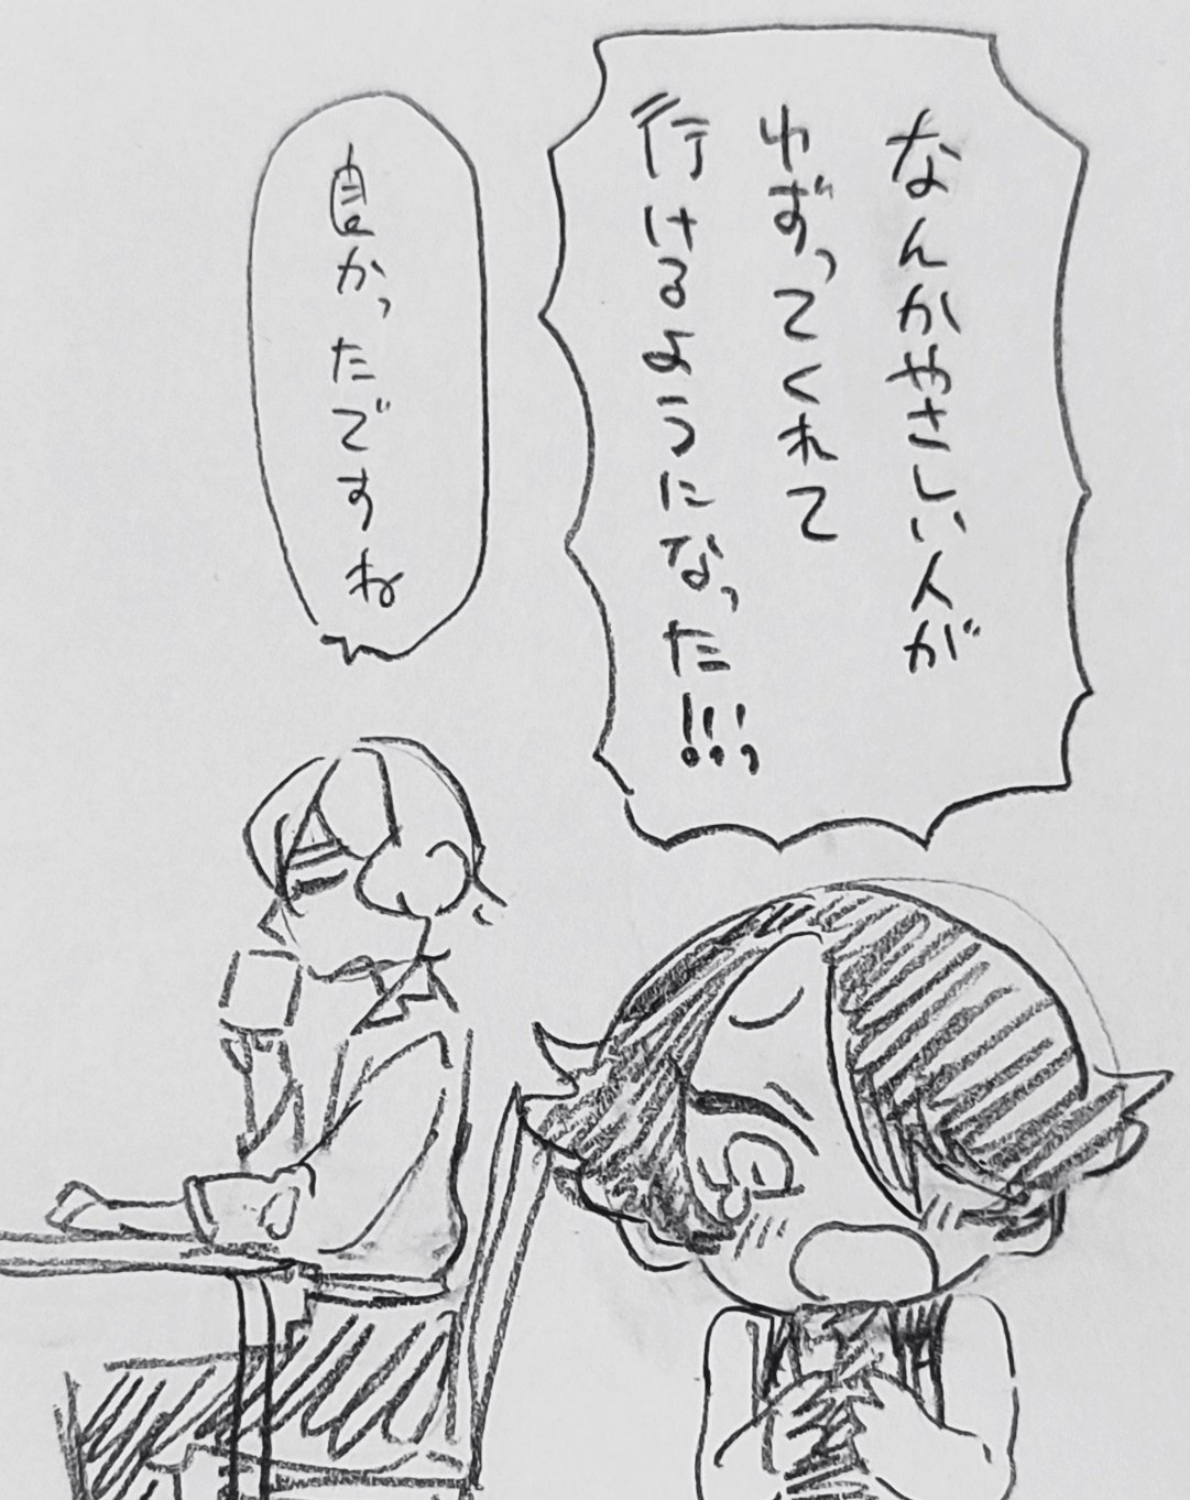 なんかやさしい人が
ゆずってくれて
行けるようになった!!!
良かったですね